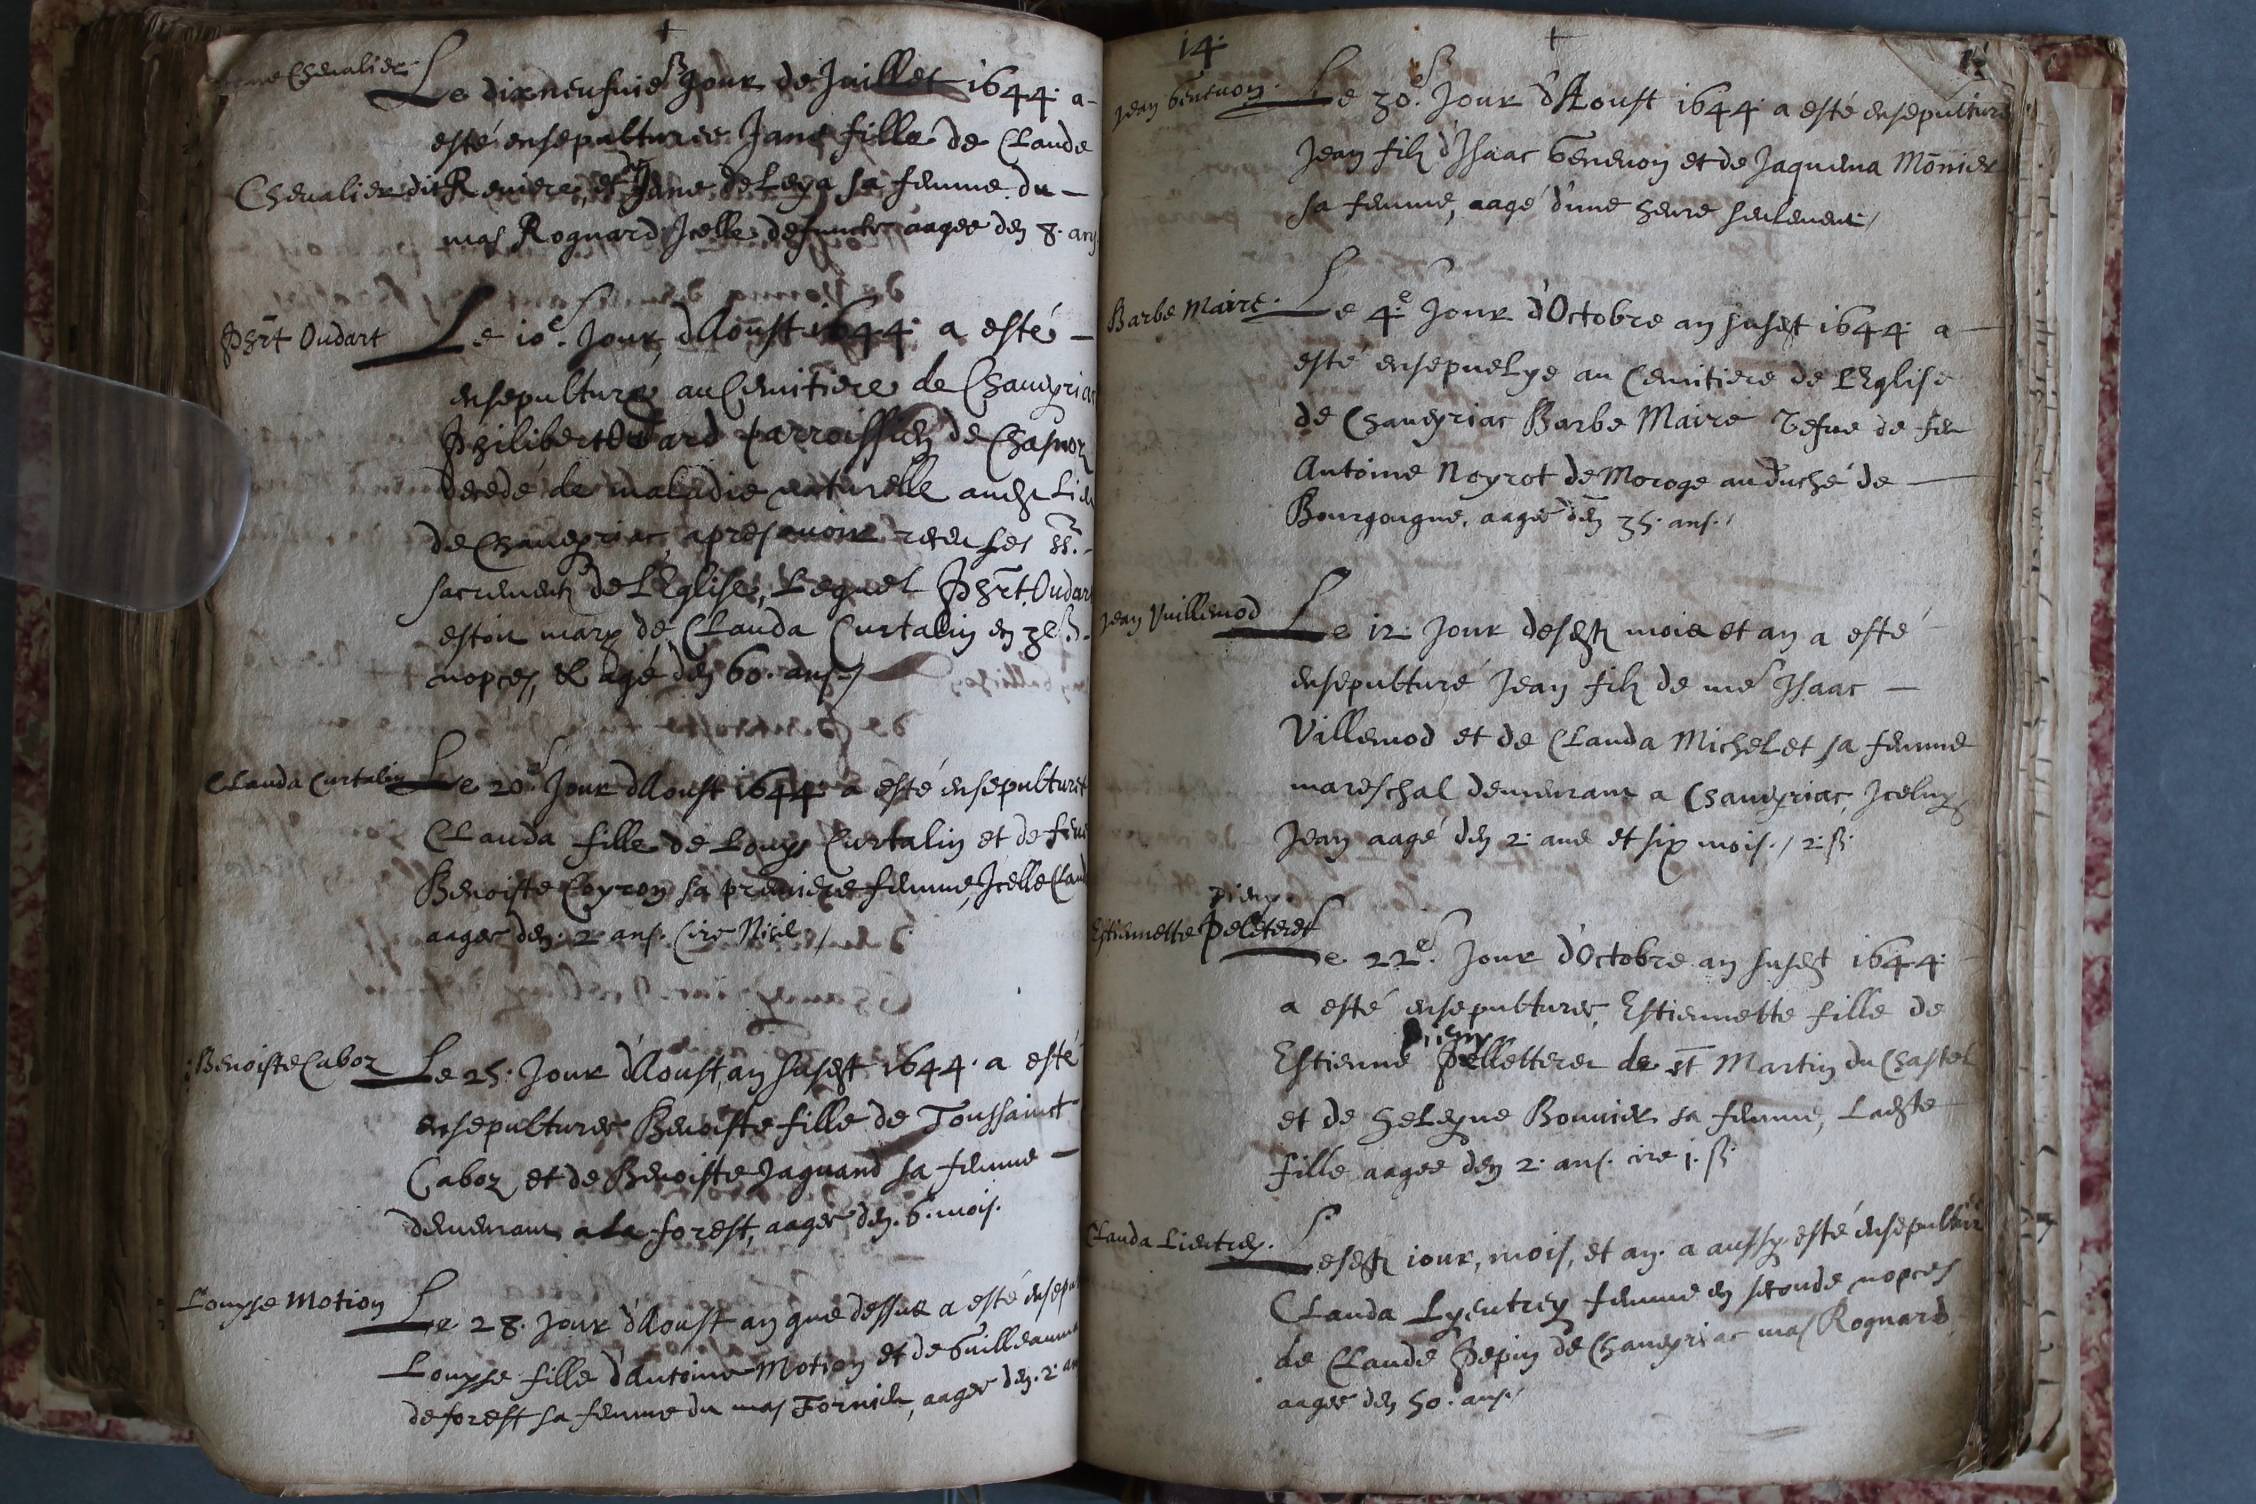 +
Jane Chevalier
Le dixneufuie Jour de Juillet 1644. a
esté ensepulturee Jane fille de Claude
Chevalier dit Reniere, et Jane deLeya sa femme du
mas Roguard Icelle defuncte aagee den 8. ans
Phrt Oudart
Le 10e. Jour dAoust 1644. a esté
ensepulturé au Cemitiere de Chaueyriac
Philibert Oudard parroissien de Chasnoz
decedé de maladie naturelle audt Lieu
de Chaueyriac, apres auoir receu ses SS.
sacrements de LEglise, Lequel Phrt. Oudart
estoit mary de Clauda Curtalin en 3es.
nopces, & agé den 60. ans /
Clauda Curtalin
Le 20e Jour dAoust 1644 a esté ensepulturee
Clauda fille de Louys Curtalin et de feue
Benoiste Coyron sa premiere femme, Icelle Claud
aagee den. 2 ans. Cire Nihil /
Benoiste Caboz
Le 25. Jour dAoust, an susdt 1644. a esté
ensepulturee Benoiste fille de Toussainct
Caboz et de Benoiste Jaquand sa femme
demeurant a la forest, aagee den. 6. mois.
Louyse Motion
Le 28. Jour dAoust an que dessus a esté ensepu
Louyse fille dAntoine Motion et de Guilleauma
deforest sa femme du mas Fornier, aagee den. 2. an
14.
+
Jean Geneuon.
Le 30e. Jour dAoust 1644. a esté ensepulturé
Jean filz dIsaac Geneuon et de Jaquema Mōnier
sa femme, aagé d'une heure seulement /
Barbe Maire.
Le 4e. Jour dOctobre an susdt 1644. a
esté ensepuelye au Cemitiere de LEglise
de Chaueyriac Barbe Maire Vefue de feu
Antoine Noyrot de Moroge au duché de
Bourgongne, aagee den 35. ans. /
Jean Vuillemod
Le 12. Jour desdts mois et an a esté
ensepulturé Jean filz de me Isaac
Villemod et de Clauda Michelet sa femme
mareschal demeurant a Chaueyriac, Iceluy
Jean aagé den 2. ans et six mois. / 2. ß.
pieux
Estiennette Peleteret
Le 22e. Jour dOctobre an susdt 1644.
a esté ensepulturee, Estiennette fille de
pieux
Estienne Pelletteret de St Martin du Chastel
et de Heleyne Bouuier sa femme, Ladte
fille aagee den 2. ans. cire 1. ß.
Clauda Lieutrey.
Lesdts iour, mois, et an. a aussy esté ensepultur
Clauda Lyeutrey femme en seconde nopces
de Claude Pepin de Chaueyriac mas Roguard
aagee den 50. ans. /